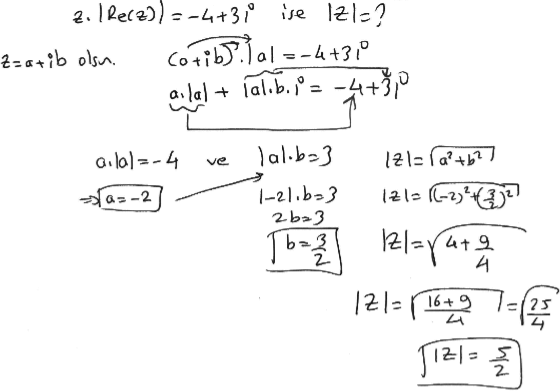 z.|Re(z)| = -4+3i ise |z|=?
z=a+ib olsn. (a+ib).|a| = -4+3i
a.|a| + |a|.b.i = -4+3i
a.|a| = -4 ve |a|.b=3 |z|=√(a²+b²)
⇒ a=-2 |-2|.b=3 |z|=√((-2)²+(3/2)²)
2b=3
b=3/2 |z|=√(4+9/4)
|z|=√((16+9)/4) = √(25/4)
|z|=5/2